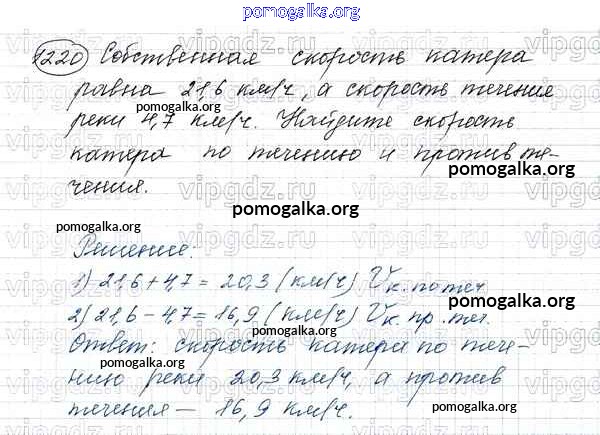 pomogalka.org
1220 Собственная скорость катера
равна 21,6 км/ч, а скорость течения
pomogalka.org pomogalka.org
реки 4,7 км/ч. Найдите скорость
катера по течению и против те-
pomogalka.org
чения.
vipgdz.ru
pomogalka.org
Решение.
1) 21,6 + 4,7 = 20,3 (км/ч) Vк. по теч
pomogalka.org
2) 21,6 - 4,7 = 16,9 (км/ч) Vк. пр. теч.
Ответ: скорость катера по тече-
pomogalka.org
нию реки 20,3 км/ч, а против
течения — 16,9 км/ч.
pomogalka.org